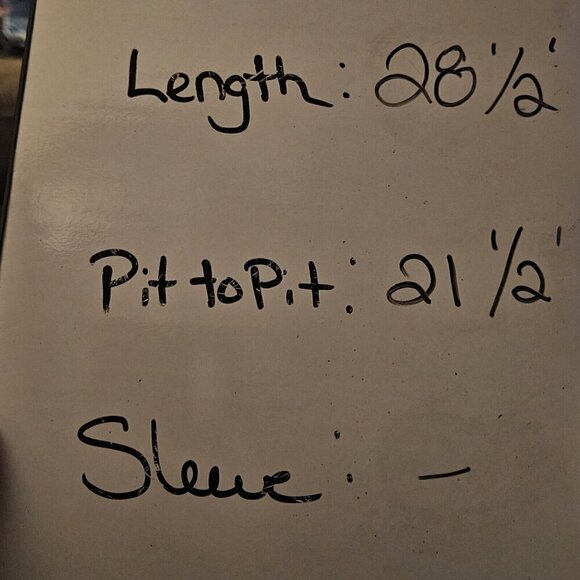 Length: 28 1/2'
Pit to Pit: 21 1/2'
Sleeve: -